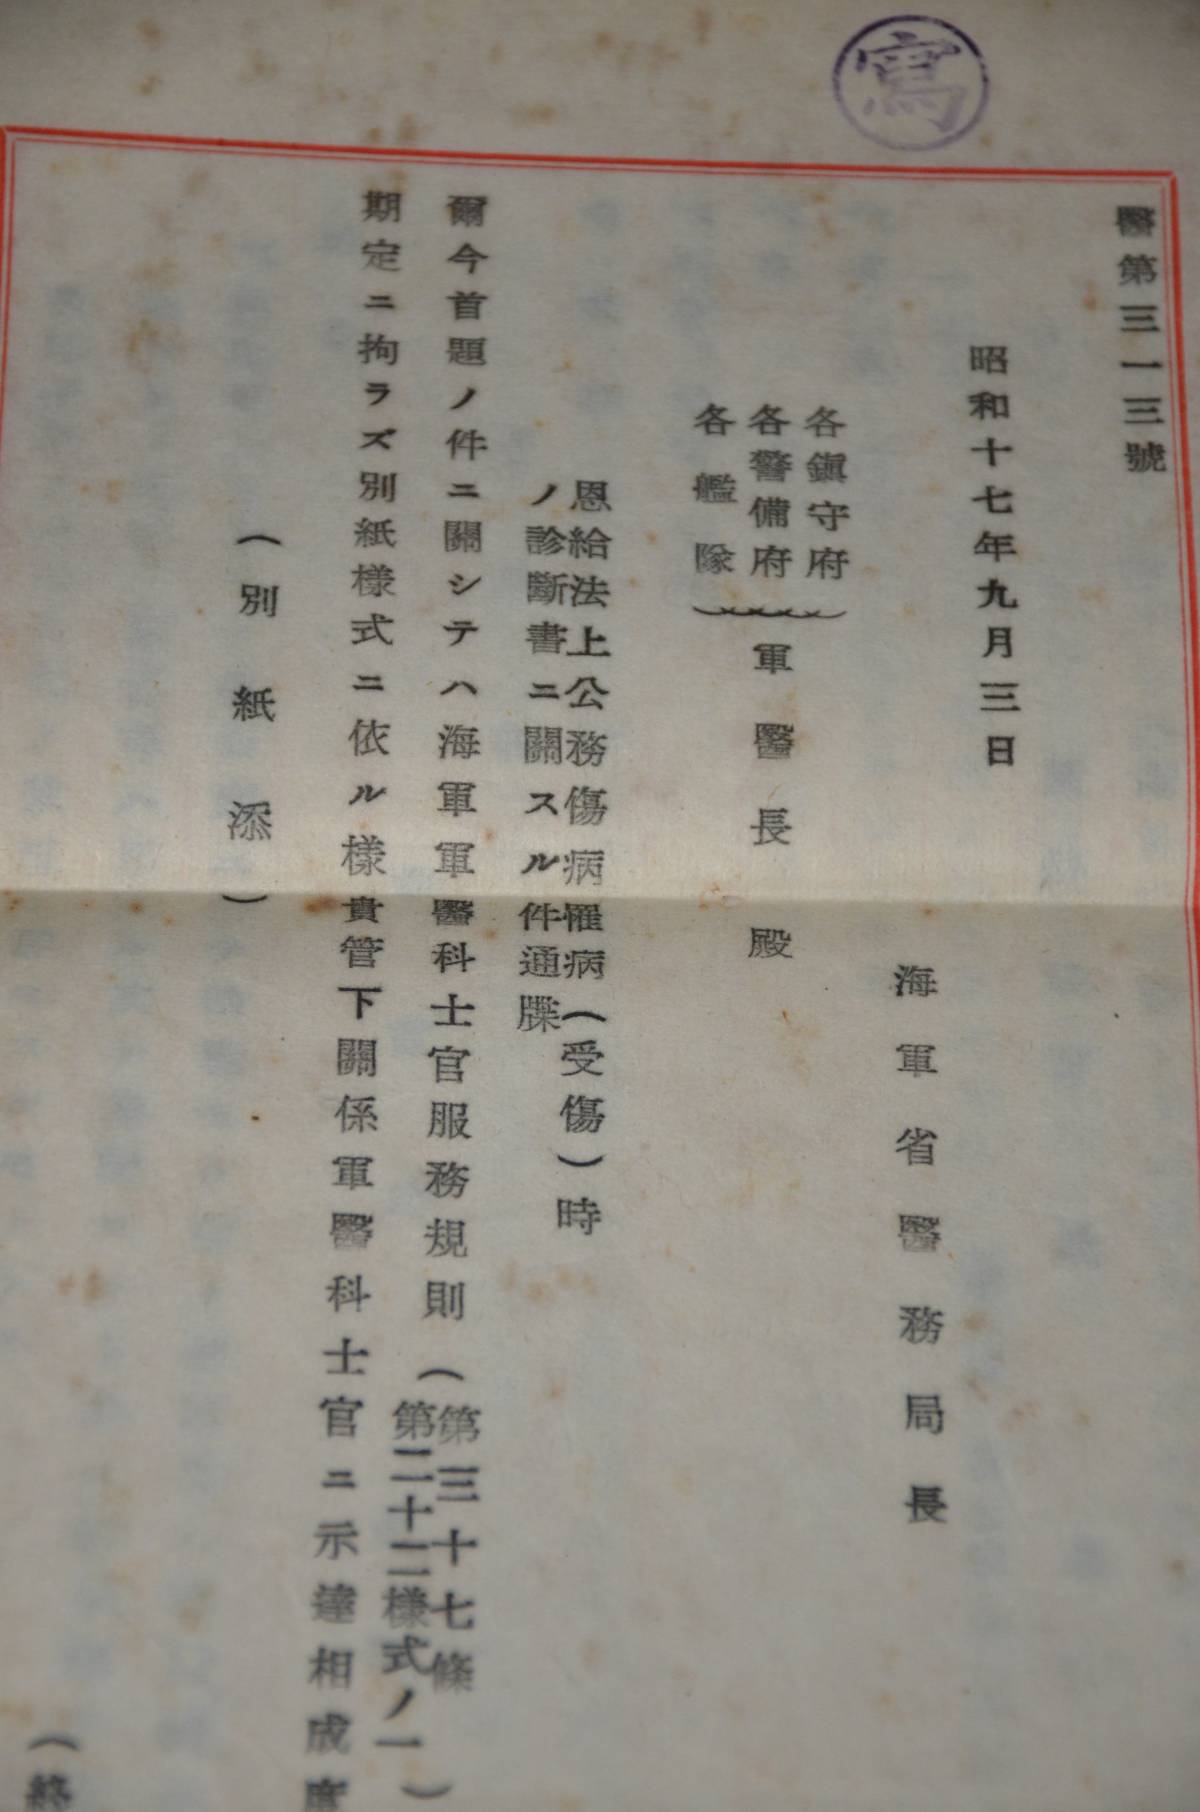 寫
醫第三一三號
昭和十七年九月三日
海軍省醫務局長
各鎭守府
各警備府
各艦隊
軍醫長殿
恩給法上公務傷病罹病(受傷)時
ノ診斷書ニ關スル件通牒
爾今首題ノ件ニ關シテハ海軍軍醫科士官服務規則(第三十七條
第二十二樣式ノ一)
期定ニ拘ラズ別紙樣式ニ依ル樣貴管下關係軍醫科士官ニ示達相成度
(別紙添)
(終